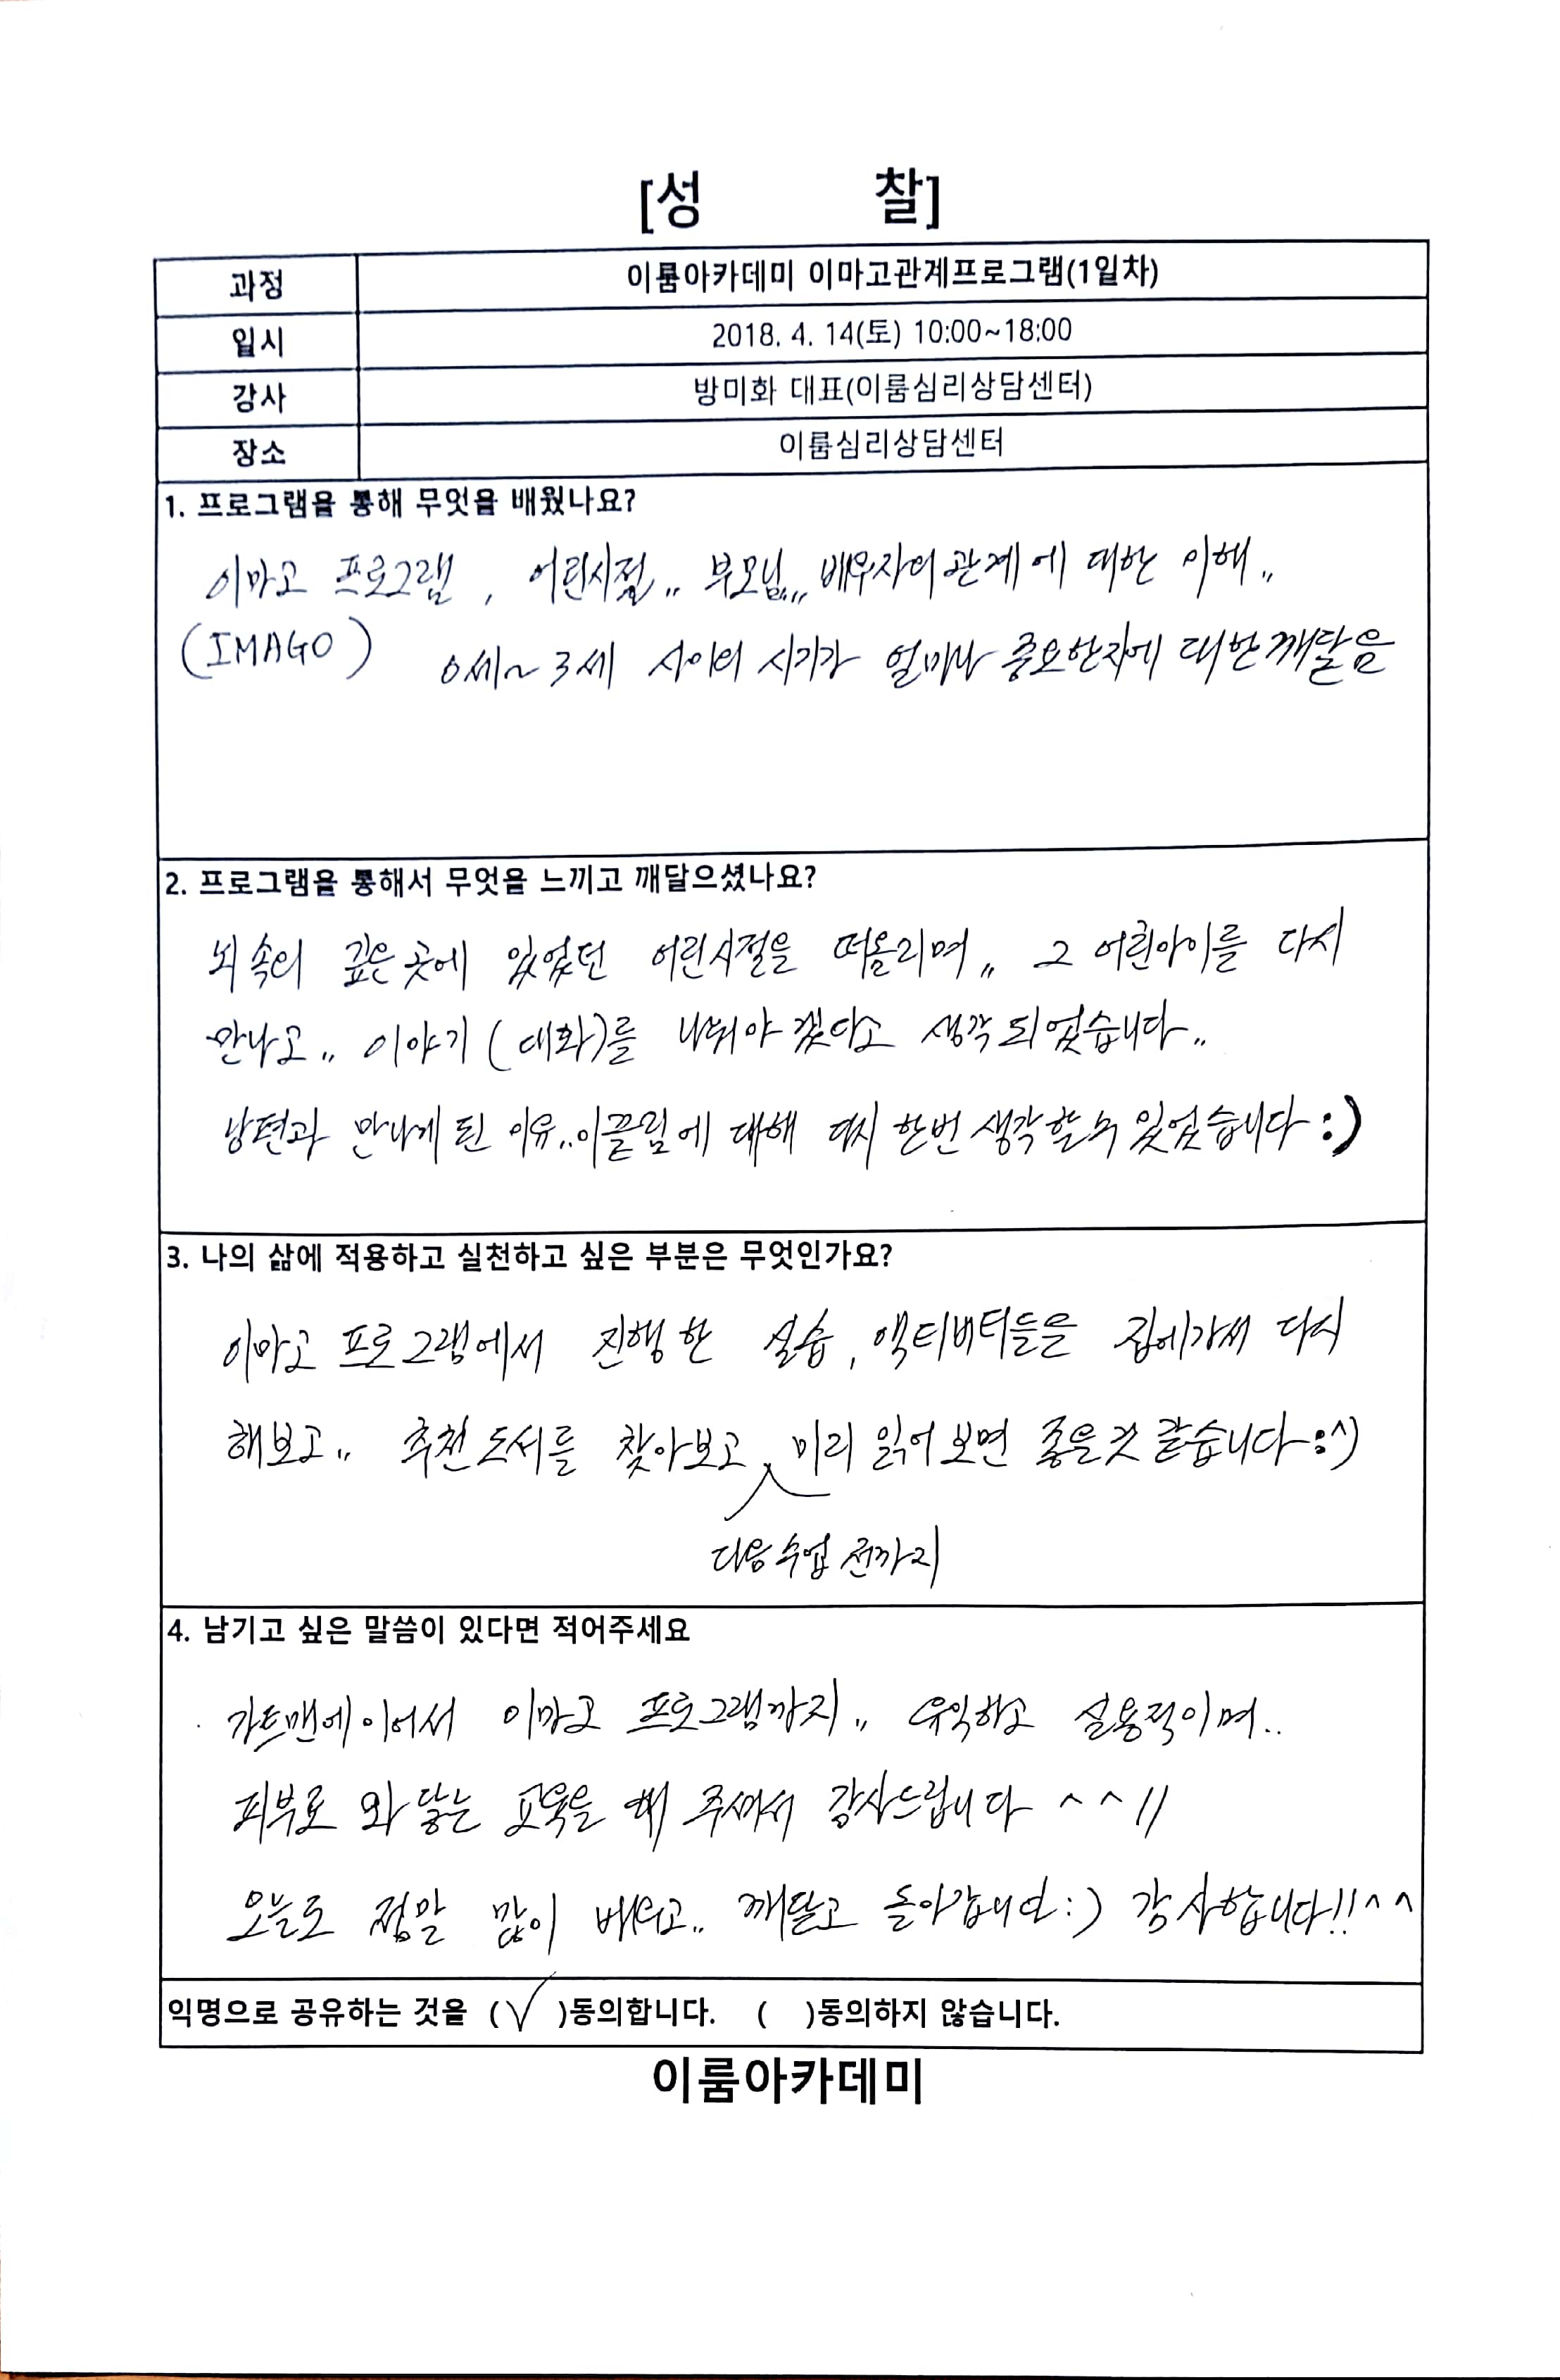 [성 찰]
과정 이룸아카데미 이마고관계프로그램(1일차)
일시 2018. 4. 14(토) 10:00~18:00
강사 방미화 대표(이룸심리상담센터)
장소 이룸심리상담센터
1. 프로그램을 통해 무엇을 배웠나요?
이마고 프로그램, 어린시절,, 부모님,,, 배우자의 관계에 대한 이해,,
(IMAGO) 0세~3세 사이의 시기가 얼마나 중요한지에 대한 깨달음
2. 프로그램을 통해서 무엇을 느끼고 깨달으셨나요?
뇌 속의 깊은 곳에 있었던 어린시절을 떠올리며,, 그 어린아이를 다시
만나고,, 이야기(대화)를 나눠야 겠다고 생각되었습니다..
남편과 만나게 된 이유..이끌림에 대해 다시 한번 생각할 수 있었습니다 :)
3. 나의 삶에 적용하고 실천하고 싶은 부분은 무엇인가요?
이마고 프로그램에서 진행한 실습, 액티버티들을 집에가서 다시
해보고,, 추천도서를 찾아보고, 미리 읽어보면 좋을것 같습니다 :^)
다음수업 전까지
4. 남기고 싶은 말씀이 있다면 적어주세요
가트맨에 이어서 이마고 프로그램까지,, 유익하고 실용적이며..
피부로 와 닿는 교육을 해 주셔서 감사드립니다 ^^//
오늘도 정말 많이 배우고,, 깨닫고 돌아갑니다 :) 감사합니다!! ^^
익명으로 공유하는 것을 (√)동의합니다. ( )동의하지 않습니다.
이룸아카데미